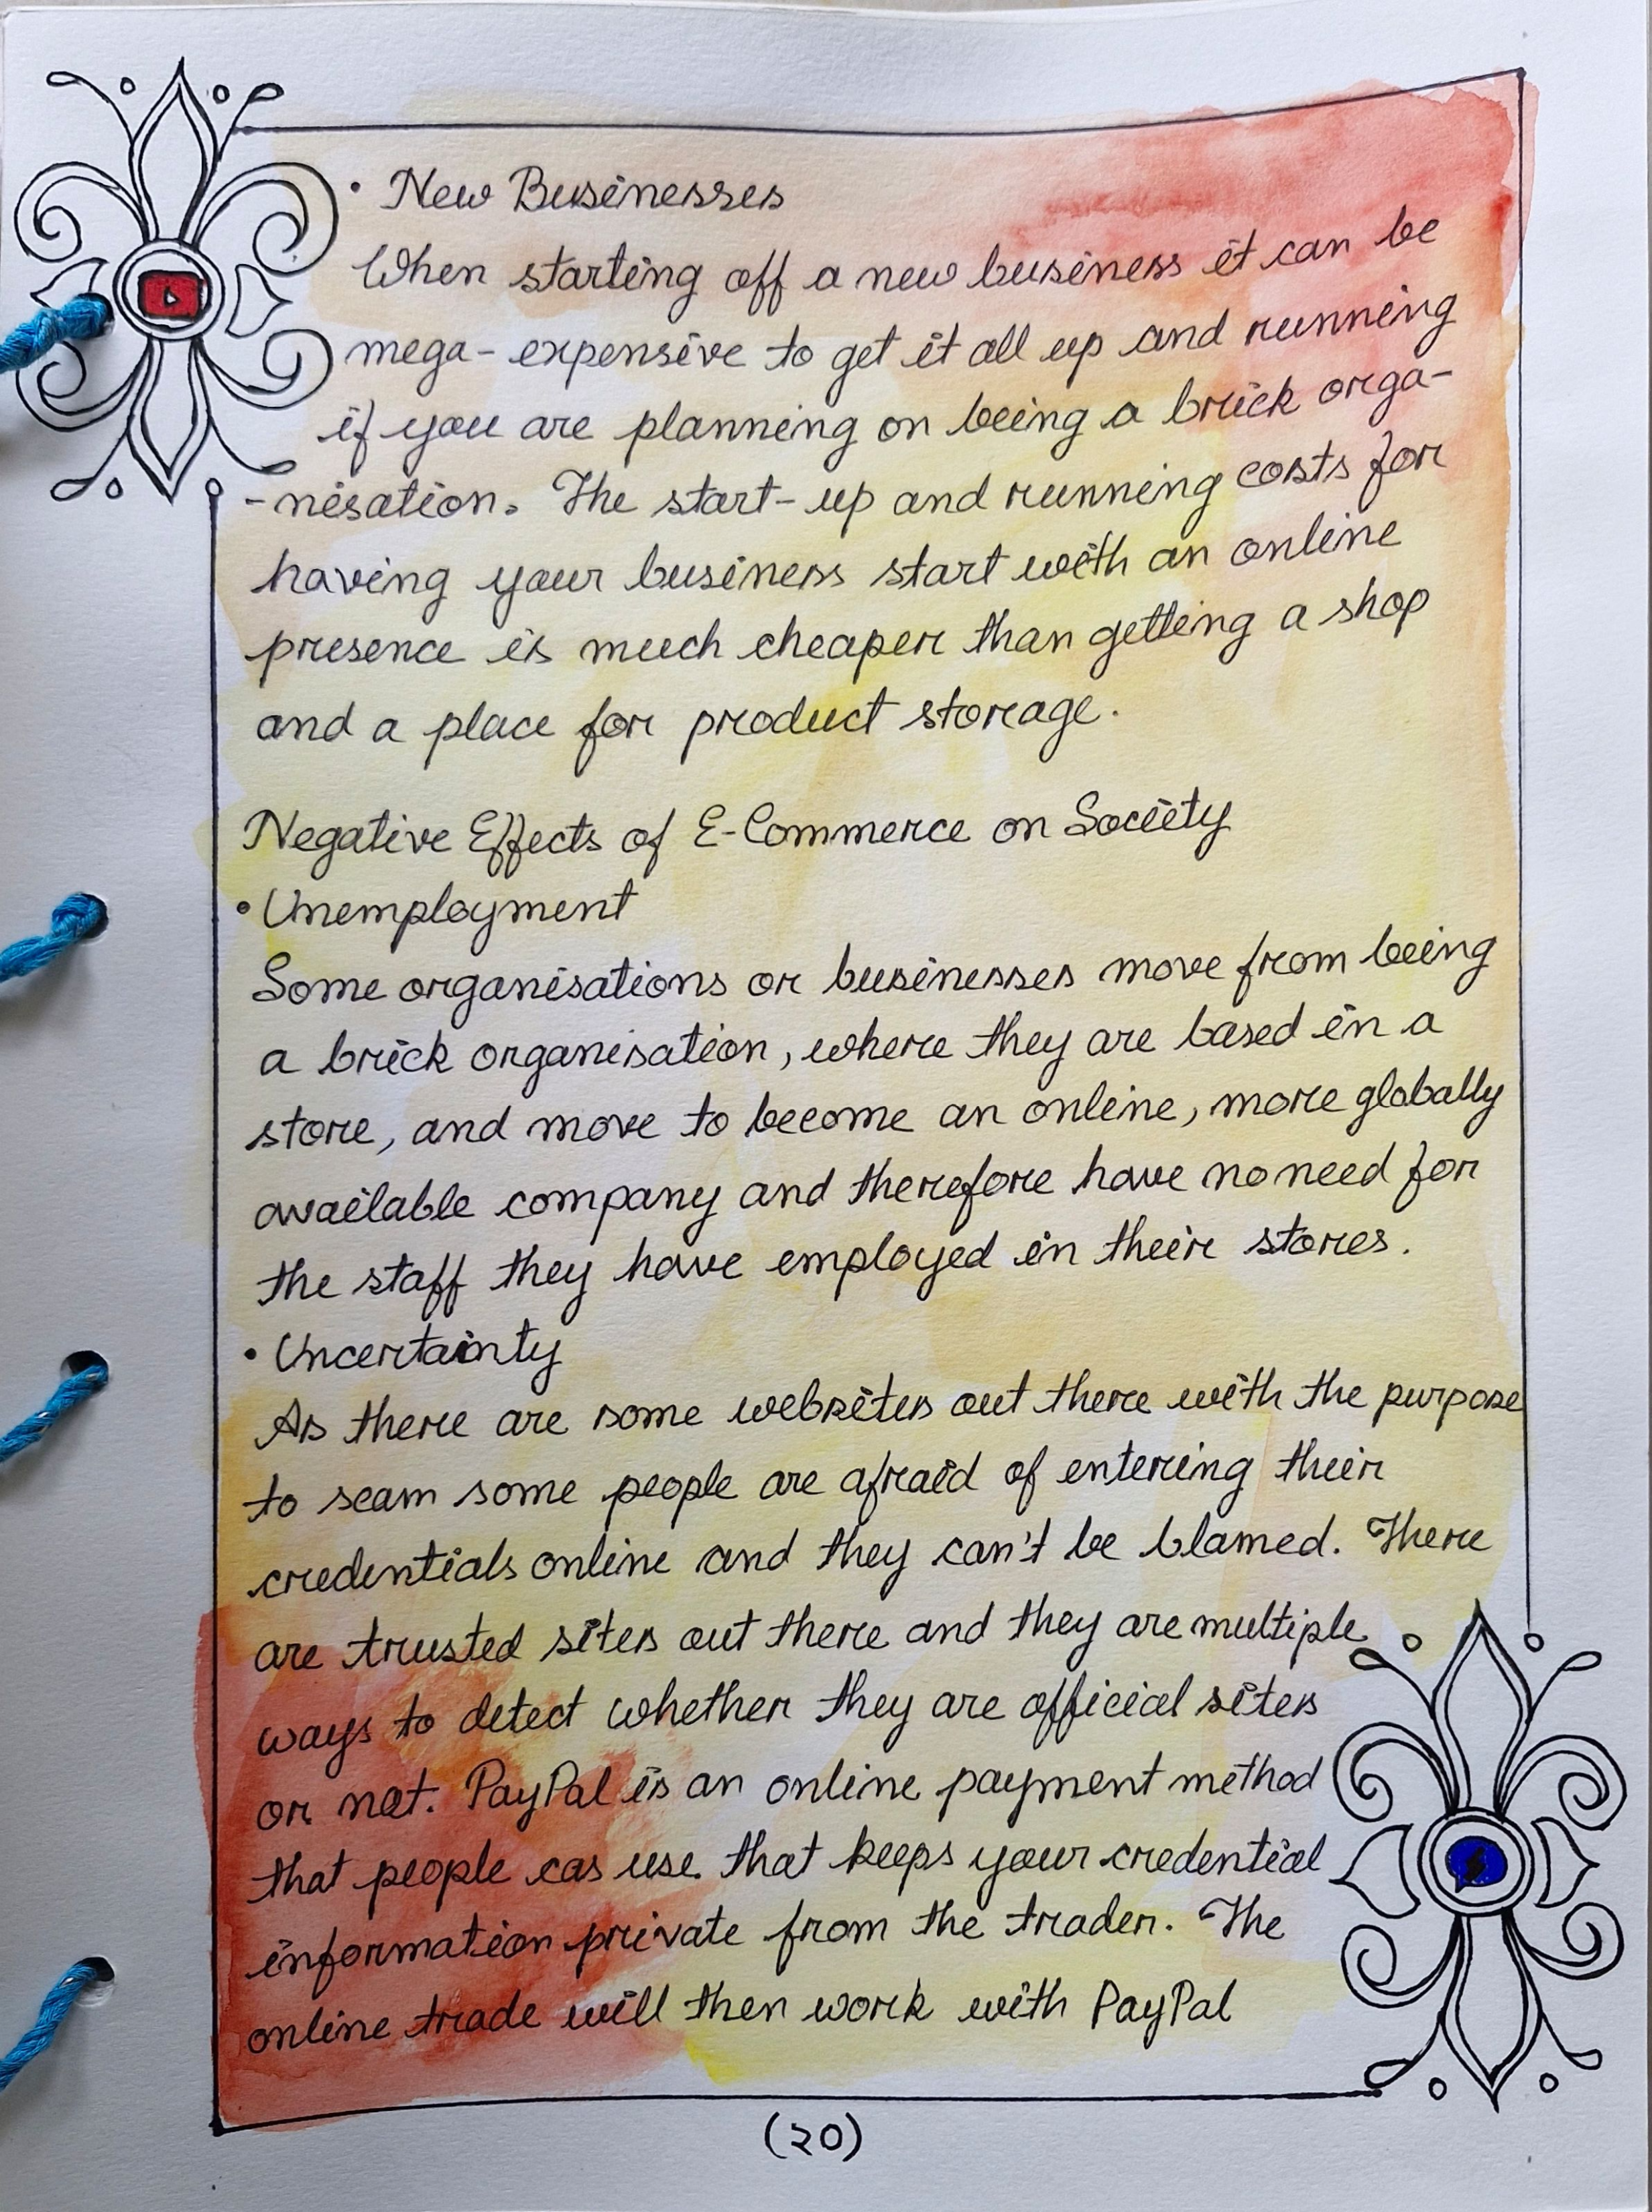 • New Businesses
When starting off a new business it can be
mega-expensive to get it all up and running
if you are planning on being a brick orga-
-nisation. The start-up and running costs for
having your business start with an online
presence is much cheaper than getting a shop
and a place for product storage.
Negative Effects of E-Commerce on Society
• Unemployment
Some organisations or businesses move from being
a brick organisation, where they are based in a
store, and move to become an online, more globally
available company and therefore have no need for
the staff they have employed in their stores.
• Uncertainty
As there are some websites out there with the purpose
to scam some people are afraid of entering their
credentials online and they can't be blamed. There
are trusted sites out there and they are multiple
ways to detect whether they are official sites
or not. PayPal is an online payment method
that people cas use that keeps your credential
information private from the trader. The
online trade will then work with PayPal
(২০)